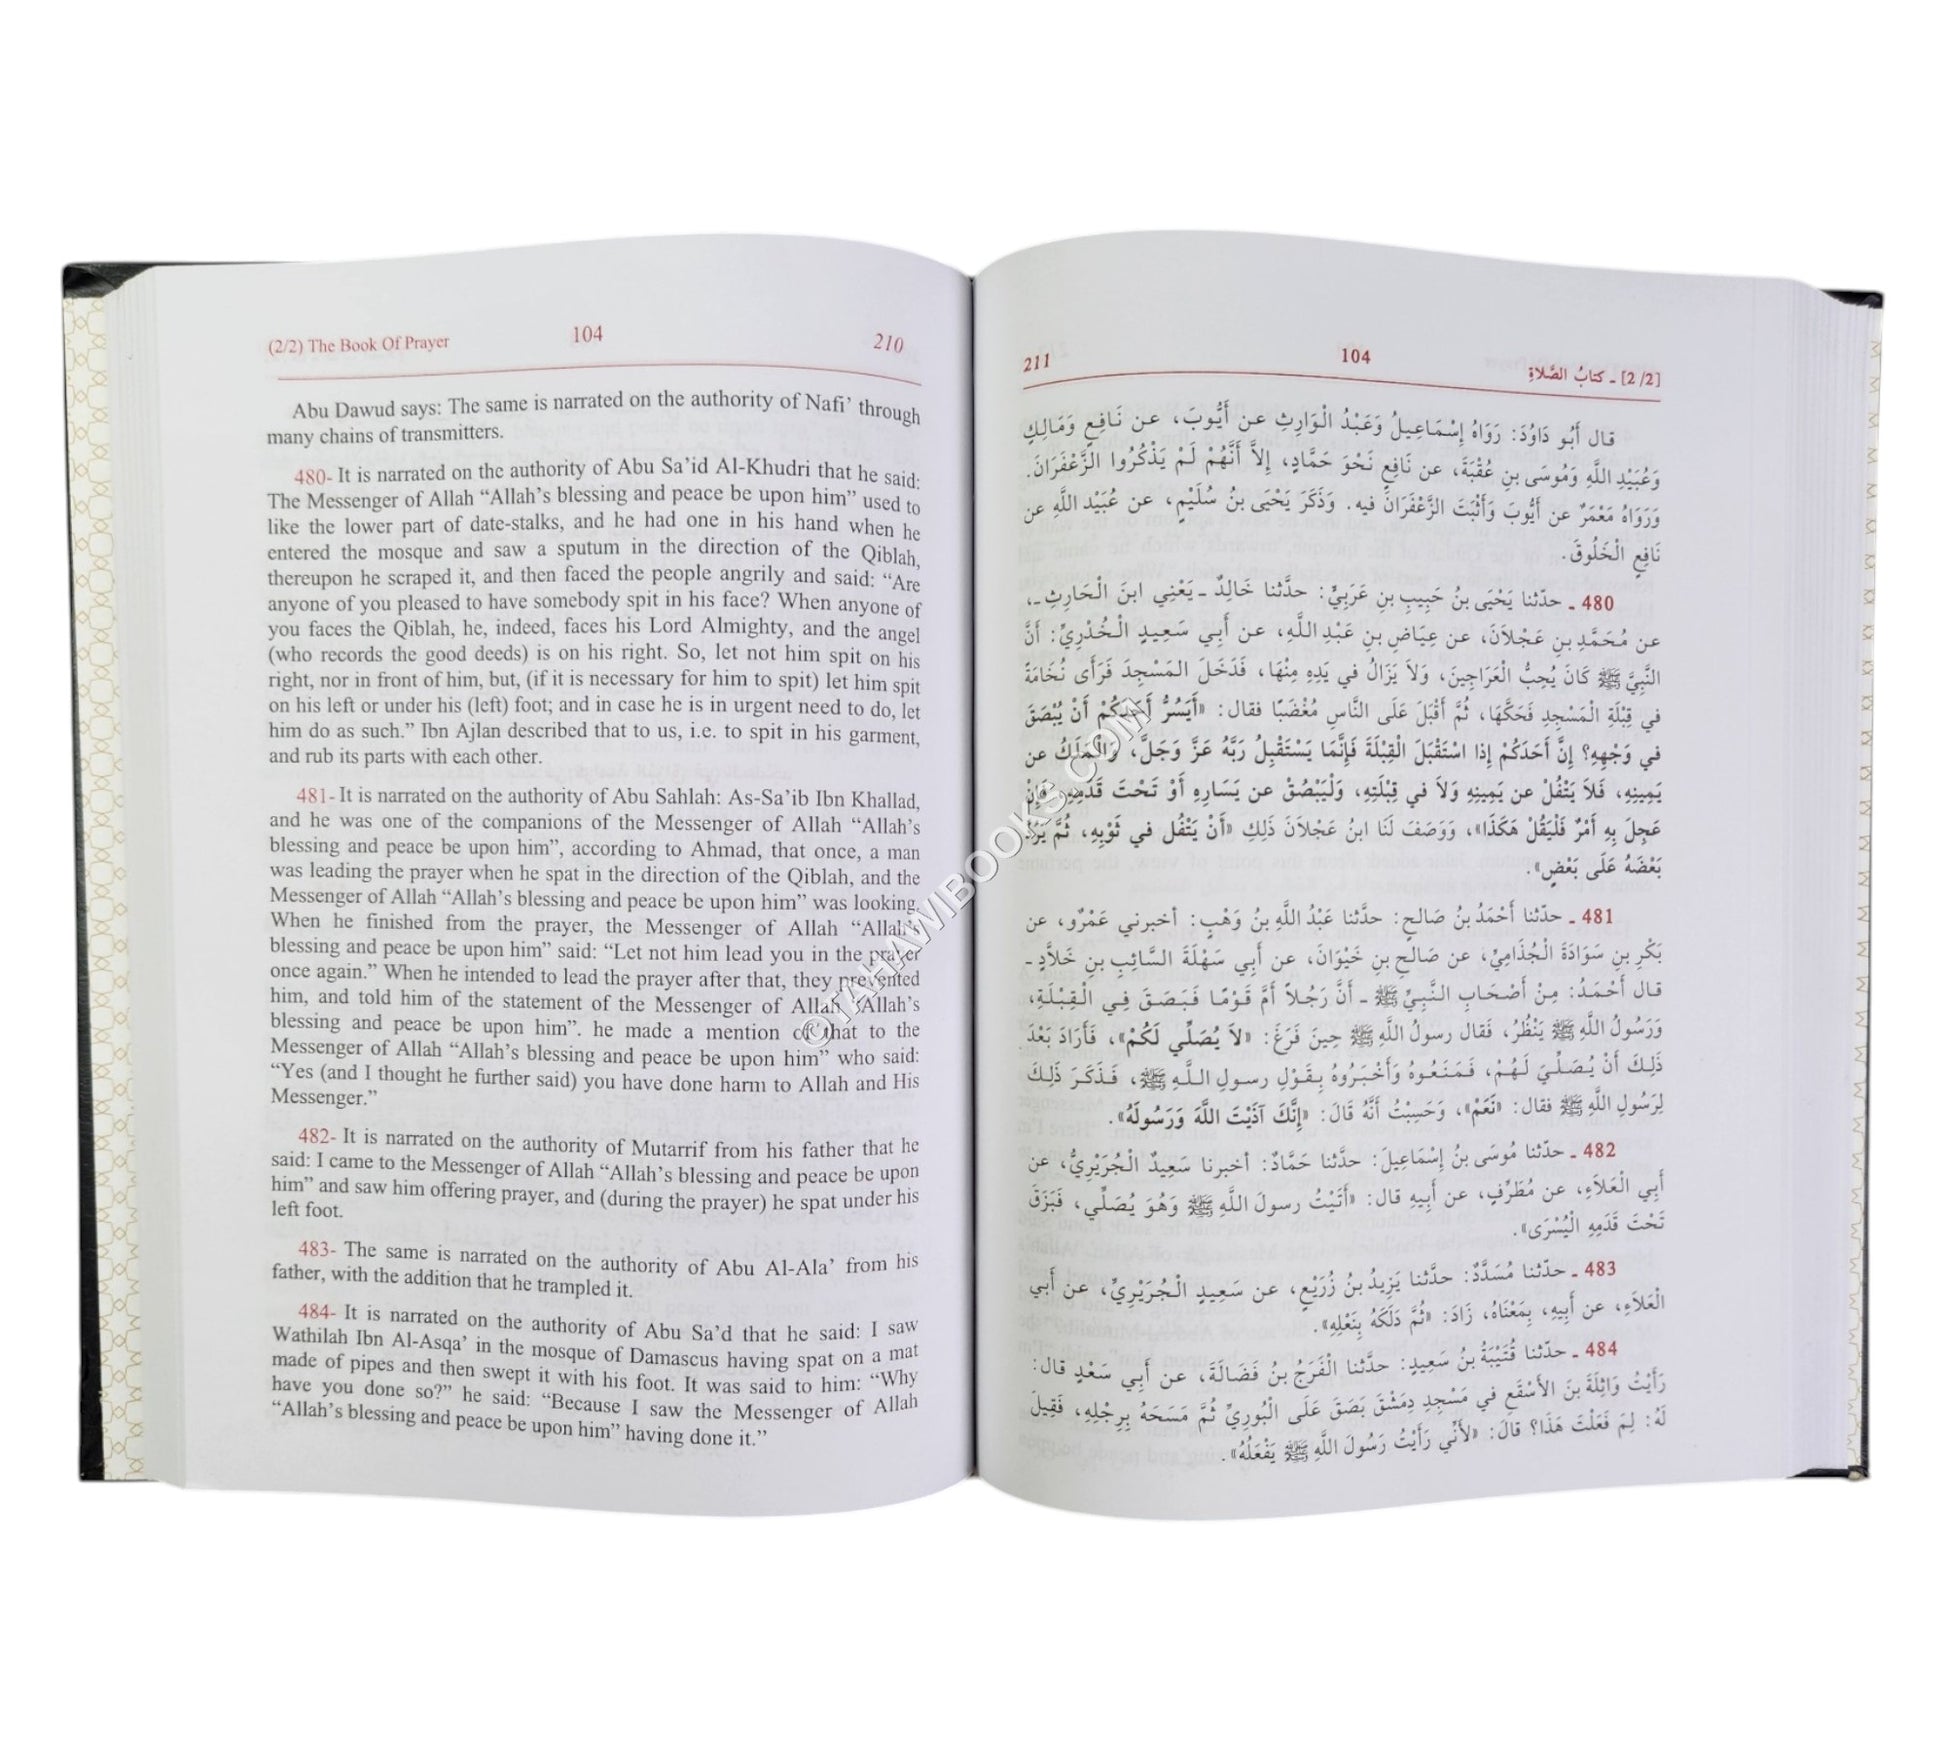 (2/2) The Book Of Prayer 104 210
Abu Dawud says: The same is narrated on the authority of Nafi’ through
many chains of transmitters.
480- It is narrated on the authority of Abu Sa’id Al-Khudri that he said:
The Messenger of Allah “Allah’s blessing and peace be upon him” used to
like the lower part of date-stalks, and he had one in his hand when he
entered the mosque and saw a sputum in the direction of the Qiblah,
thereupon he scraped it, and then faced the people angrily and said: “Are
anyone of you pleased to have somebody spit in his face? When anyone of
you faces the Qiblah, he, indeed, faces his Lord Almighty, and the angel
(who records the good deeds) is on his right. So, let not him spit on his
right, nor in front of him, but, (if it is necessary for him to spit) let him spit
on his left or under his (left) foot; and in case he is in urgent need to do, let
him do as such.” Ibn Ajlan described that to us, i.e. to spit in his garment,
and rub its parts with each other.
481- It is narrated on the authority of Abu Sahlah: As-Sa’ib Ibn Khallad,
and he was one of the companions of the Messenger of Allah “Allah’s
blessing and peace be upon him”, according to Ahmad, that once, a man
was leading the prayer when he spat in the direction of the Qiblah, and the
Messenger of Allah “Allah’s blessing and peace be upon him” was looking.
When he finished from the prayer, the Messenger of Allah “Allah’s
blessing and peace be upon him” said: “Let not him lead you in the prayer
once again.” When he intended to lead the prayer after that, they prevented
him, and told him of the statement of the Messenger of Allah “Allah’s
blessing and peace be upon him”. he made a mention of that to the
Messenger of Allah “Allah’s blessing and peace be upon him” who said:
“Yes (and I thought he further said) you have done harm to Allah and His
Messenger.”
482- It is narrated on the authority of Mutarrif from his father that he
said: I came to the Messenger of Allah “Allah’s blessing and peace be upon
him” and saw him offering prayer, and (during the prayer) he spat under his
left foot.
483- The same is narrated on the authority of Abu Al-Ala’ from his
father, with the addition that he trampled it.
484- It is narrated on the authority of Abu Sa’d that he said: I saw
Wathilah Ibn Al-Asqa’ in the mosque of Damascus having spat on a mat
made of pipes and then swept it with his foot. It was said to him: “Why
have you done so?” he said: “Because I saw the Messenger of Allah
“Allah’s blessing and peace be upon him” having done it.”
[2/2] ـ كتابُ الصَّلاةِ 104 211
قال أَبُو دَاوُدَ: رَوَاهُ إِسْمَاعِيلُ وَعَبْدُ الْوَارِثِ عن أَيُّوبَ، عن نَافِعٍ وَمَالِكٍ
وَعُبَيْدِ اللَّهِ وَمُوسَى بنِ عُقْبَةَ، عن نَافِعٍ نَحْوَ حَمَّادٍ، إِلاَّ أَنَّهُمْ لَمْ يَذْكُرُوا الزَّعْفَرَانَ.
وَرَوَاهُ مَعْمَرٌ عن أَيُّوبَ وَأَثْبَتَ الزَّعْفَرَانَ فيه. وَذَكَرَ يَحْيَى بنُ سُلَيْمٍ، عن عُبَيْدِ اللَّهِ عن
نَافِعٍ الْخَلُوقَ.
480 ـ حدّثنا يَحْيَى بنُ حَبِيبِ بنِ عَرَبِيٍّ: حدَّثنا خَالِدٌ ـ يَعْنِي ابنَ الْحَارِثِ ـ،
عن مُحَمَّدِ بنِ عَجْلاَنَ، عن عِيَاضِ بنِ عَبْدِ اللَّهِ، عن أَبِي سَعِيدٍ الْخُدْرِيِّ: أَنَّ
النَّبِيَّ ﷺ كَانَ يُحِبُّ الْعَرَاجِينَ، وَلاَ يَزَالُ في يَدِهِ مِنْهَا، فَدَخَلَ المَسْجِدَ فَرَأَى نُخَامَةً
في قِبْلَةِ المَسْجِدِ فَحَكَّهَا، ثُمَّ أَقْبَلَ عَلَى النَّاسِ مُغْضَبًا فقال: «أَيَسُرُّ أَحَدَكُمْ أَنْ يُبْصَقَ
في وَجْهِهِ؟ إِنَّ أَحَدَكُمْ إِذا اسْتَقْبَلَ الْقِبْلَةَ فَإِنَّمَا يَسْتَقْبِلُ رَبَّهُ عَزَّ وَجَلَّ، وَالْمَلَكُ عن
يَمِينِهِ، فَلاَ يَتْفُلْ عن يَمِينِهِ وَلاَ في قِبْلَتِهِ، وَلْيَبْصُقْ عن يَسَارِهِ أَوْ تَحْتَ قَدَمِهِ، فَإِنْ
عَجِلَ بِهِ أَمْرٌ فَلْيَقُلْ هَكَذَا»، وَوَصَفَ لَنَا ابنُ عَجْلاَنَ ذَلِكِ «أَنْ يَتْفُل في ثَوْبِهِ، ثُمَّ يَرُدَّ
بَعْضَهُ عَلَى بَعْضٍ».
481 ـ حدّثنا أَحْمَدُ بنُ صَالحٍ: حدَّثنا عَبْدُ اللَّهِ بنُ وَهْبٍ: أخبرني عَمْرٌو، عن
بَكْرِ بنِ سَوَادَةَ الْجُذَامِيِّ، عن صَالحِ بنِ خَيْوَانَ، عن أَبِي سَهْلَةَ السَّائِبِ بنِ خَلاَّدٍ ـ
قال أَحْمَدُ: مِنْ أَصْحَابِ النَّبِيِّ ﷺ ـ أَنَّ رَجُلاً أَمَّ قَوْمًا فَبَصَقَ فِي الْقِبْلَةِ،
وَرَسُولُ اللَّهِ ﷺ يَنْظُرُ، فَقال رسولُ اللَّهِ ﷺ حِينَ فَرَغَ: «لاَ يُصَلِّي لَكُمْ»، فَأَرَادَ بَعْدَ
ذَلِكَ أَنْ يُصَلِّيَ لَهُمْ، فَمَنَعُوهُ وَأَخْبَرُوهُ بِقَوْلِ رسولِ اللَّهِ ﷺ، فَذَكَرَ ذَلِكَ
لِرَسُولِ اللَّهِ ﷺ فقال: «نَعَمْ»، وَحَسِبْتُ أَنَّهُ قَالَ: «إِنَّكَ آذَيْتَ اللَّهَ وَرَسُولَهُ».
482 ـ حدّثنا مُوسَى بنُ إِسْمَاعِيلَ: حدَّثنا حَمَّادٌ: أخبرنا سَعِيدٌ الْجُرَيْرِيُّ، عن
أَبِي الْعَلاَءِ، عن مُطَرِّفٍ، عن أَبِيهِ قال: «أَتَيْتُ رسولَ اللَّهِ ﷺ وَهُوَ يُصَلِّي، فَبَزَقَ
تَحْتَ قَدَمِهِ الْيُسْرَى».
483 ـ حدّثنا مُسَدَّدٌ: حدَّثنا يَزِيدُ بنُ زُرَيْعٍ، عن سَعِيدٍ الْجُرَيْرِيِّ، عن أَبي
الْعَلاَءِ، عن أَبِيهِ، بِمَعْنَاهُ، زَادَ: «ثُمَّ دَلَكَهُ بِنَعْلِهِ».
484 ـ حدّثنا قُتَيْبَةُ بنُ سَعِيدٍ: حدَّثنا الْفَرَجُ بنُ فَضَالَةَ، عن أَبِي سَعْدٍ قال:
رَأَيْتُ وَاثِلَةَ بنَ الأَسْقَعِ في مَسْجِدِ دِمَشْقَ بَصَقَ عَلَى الْبُورِيِّ ثُمَّ مَسَحَهُ بِرِجْلِهِ، فَقِيلَ
لَهُ: لِمَ فَعَلْتَ هَذَا؟ قالَ: «لأَنِّي رَأَيْتُ رَسُولَ اللَّهِ ﷺ يَفْعَلُهُ».
© TAHAWIBOOKS.COM